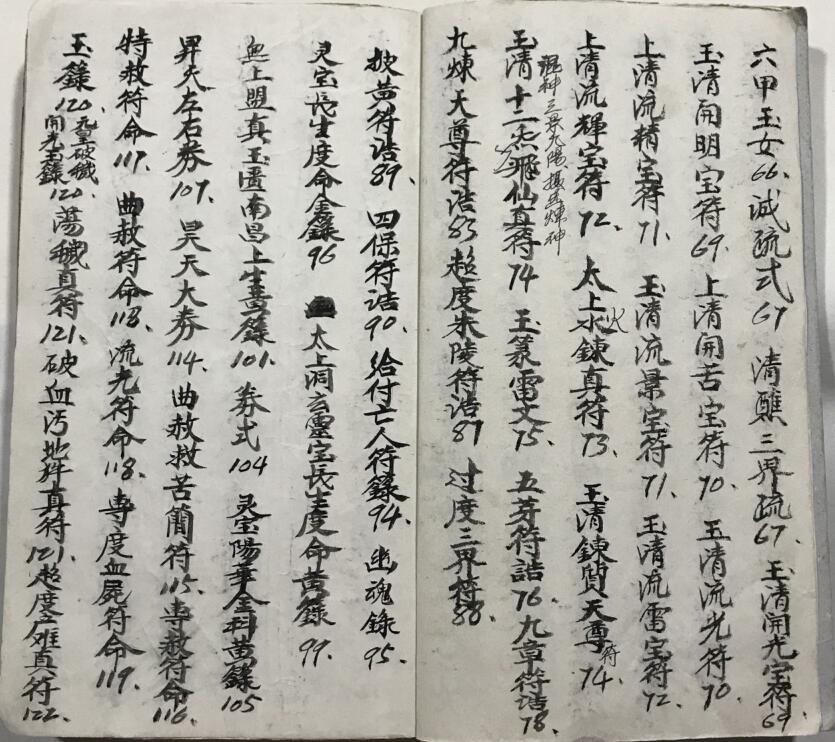 六甲玉女66.诚疏式67 清醮三界疏67.玉清開光宝符69
玉清開明宝符69.上清開苦宝符70.玉清流光符70.
上清流精宝符71.玉清流景宝符71.玉清流雷宝符72.
上清流輝宝符72.太上水火鍊真符73.玉清鍊質天尊符74.
混神三景九陽攝炁煉神
玉清十二炁飛仙真符74 玉篆雷文75.五芽符誥76.九章符诰78.
九煉天尊符诰83 超度朱陵符诰87 过度三界符88.
敕黄符诰89.四保符诰90.给付亡人符籙94.幽魂籙95.
灵宝長生度命金籙96 太上洞玄靈宝長生度命黄籙99.
無上盟真玉匱南昌上生黄籙101.券式104 灵宝陽華金科黄籙105
昇天左右券107.昊天大券114.曲赦救苦簡符115.専赦符命116.
特赦符命117.曲赦符命118.流光符命118.専度血屍符命119.
玉籙120.元皇破穢開光玉籙120.蕩穢真符121.破血污地猝真符121.超度産难真符122.